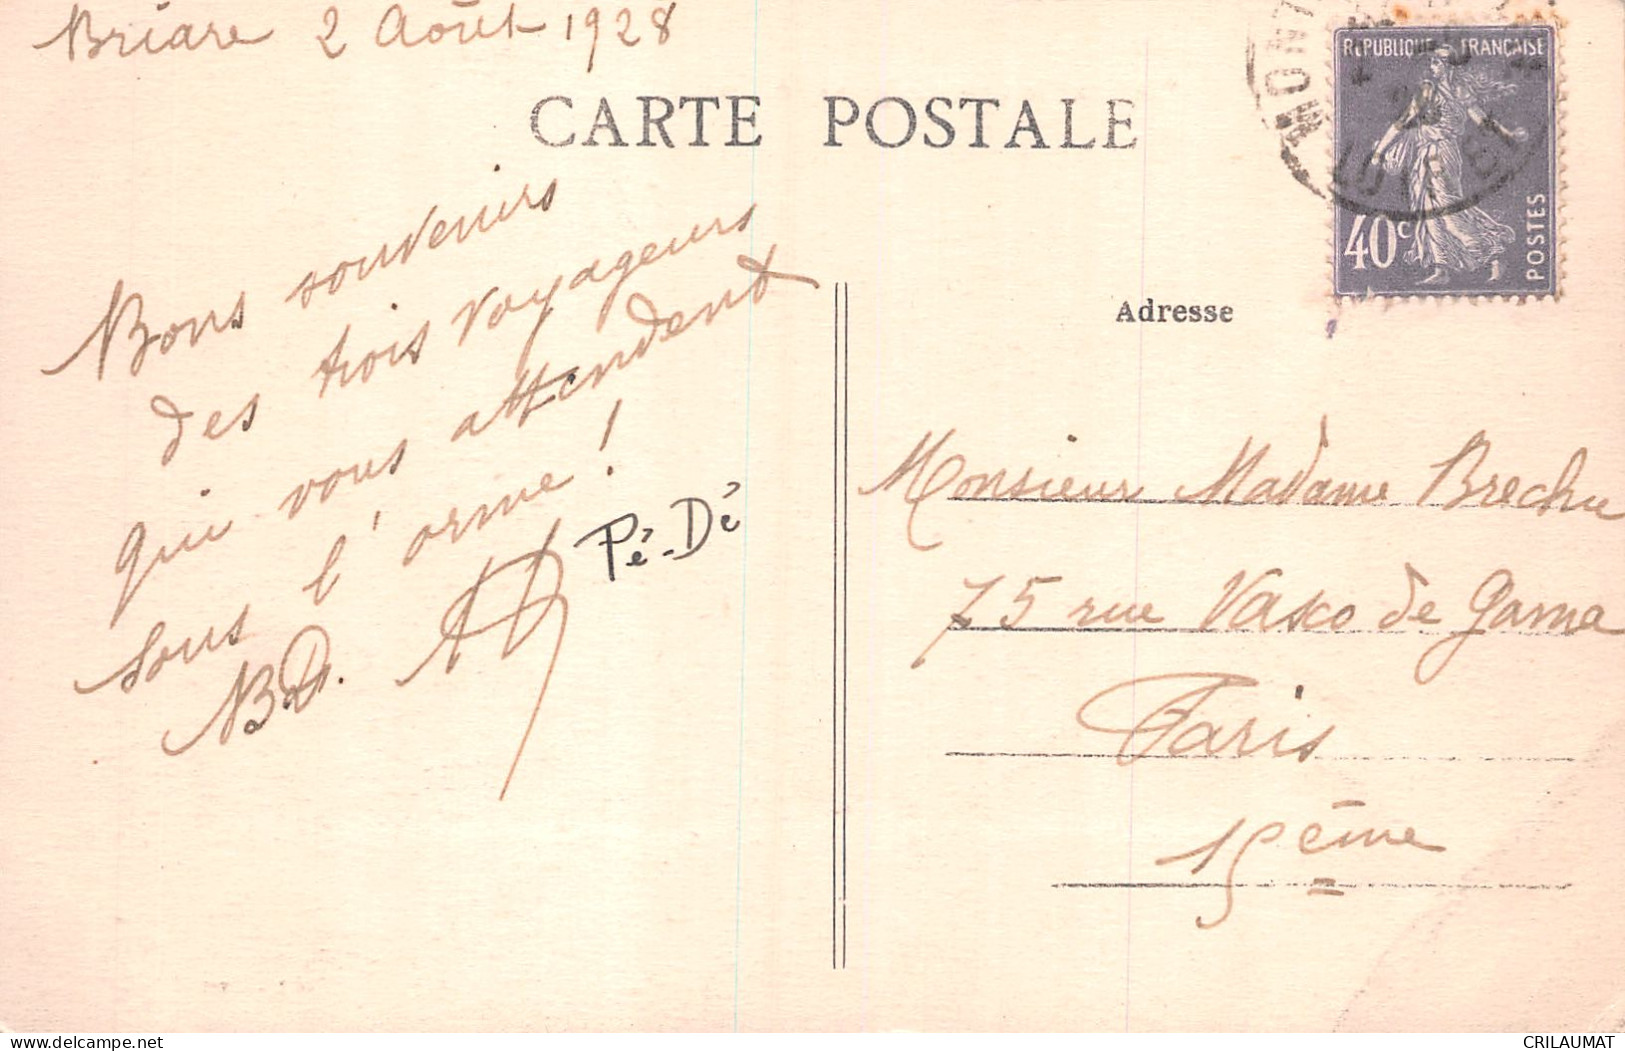 Briare 2 Août 1928
CARTE POSTALE
REPUBLIQUE FRANÇAISE
40c
POSTES
Bons souvenirs
des trois voyageurs
qui vous attendent
sous l'orme !
Pé-Dé
Adresse
Monsieur Madame Brechu
75 rue Vasco de Gama
Paris
15ème
LOIRET
delcampe.net
CRILAUMAT